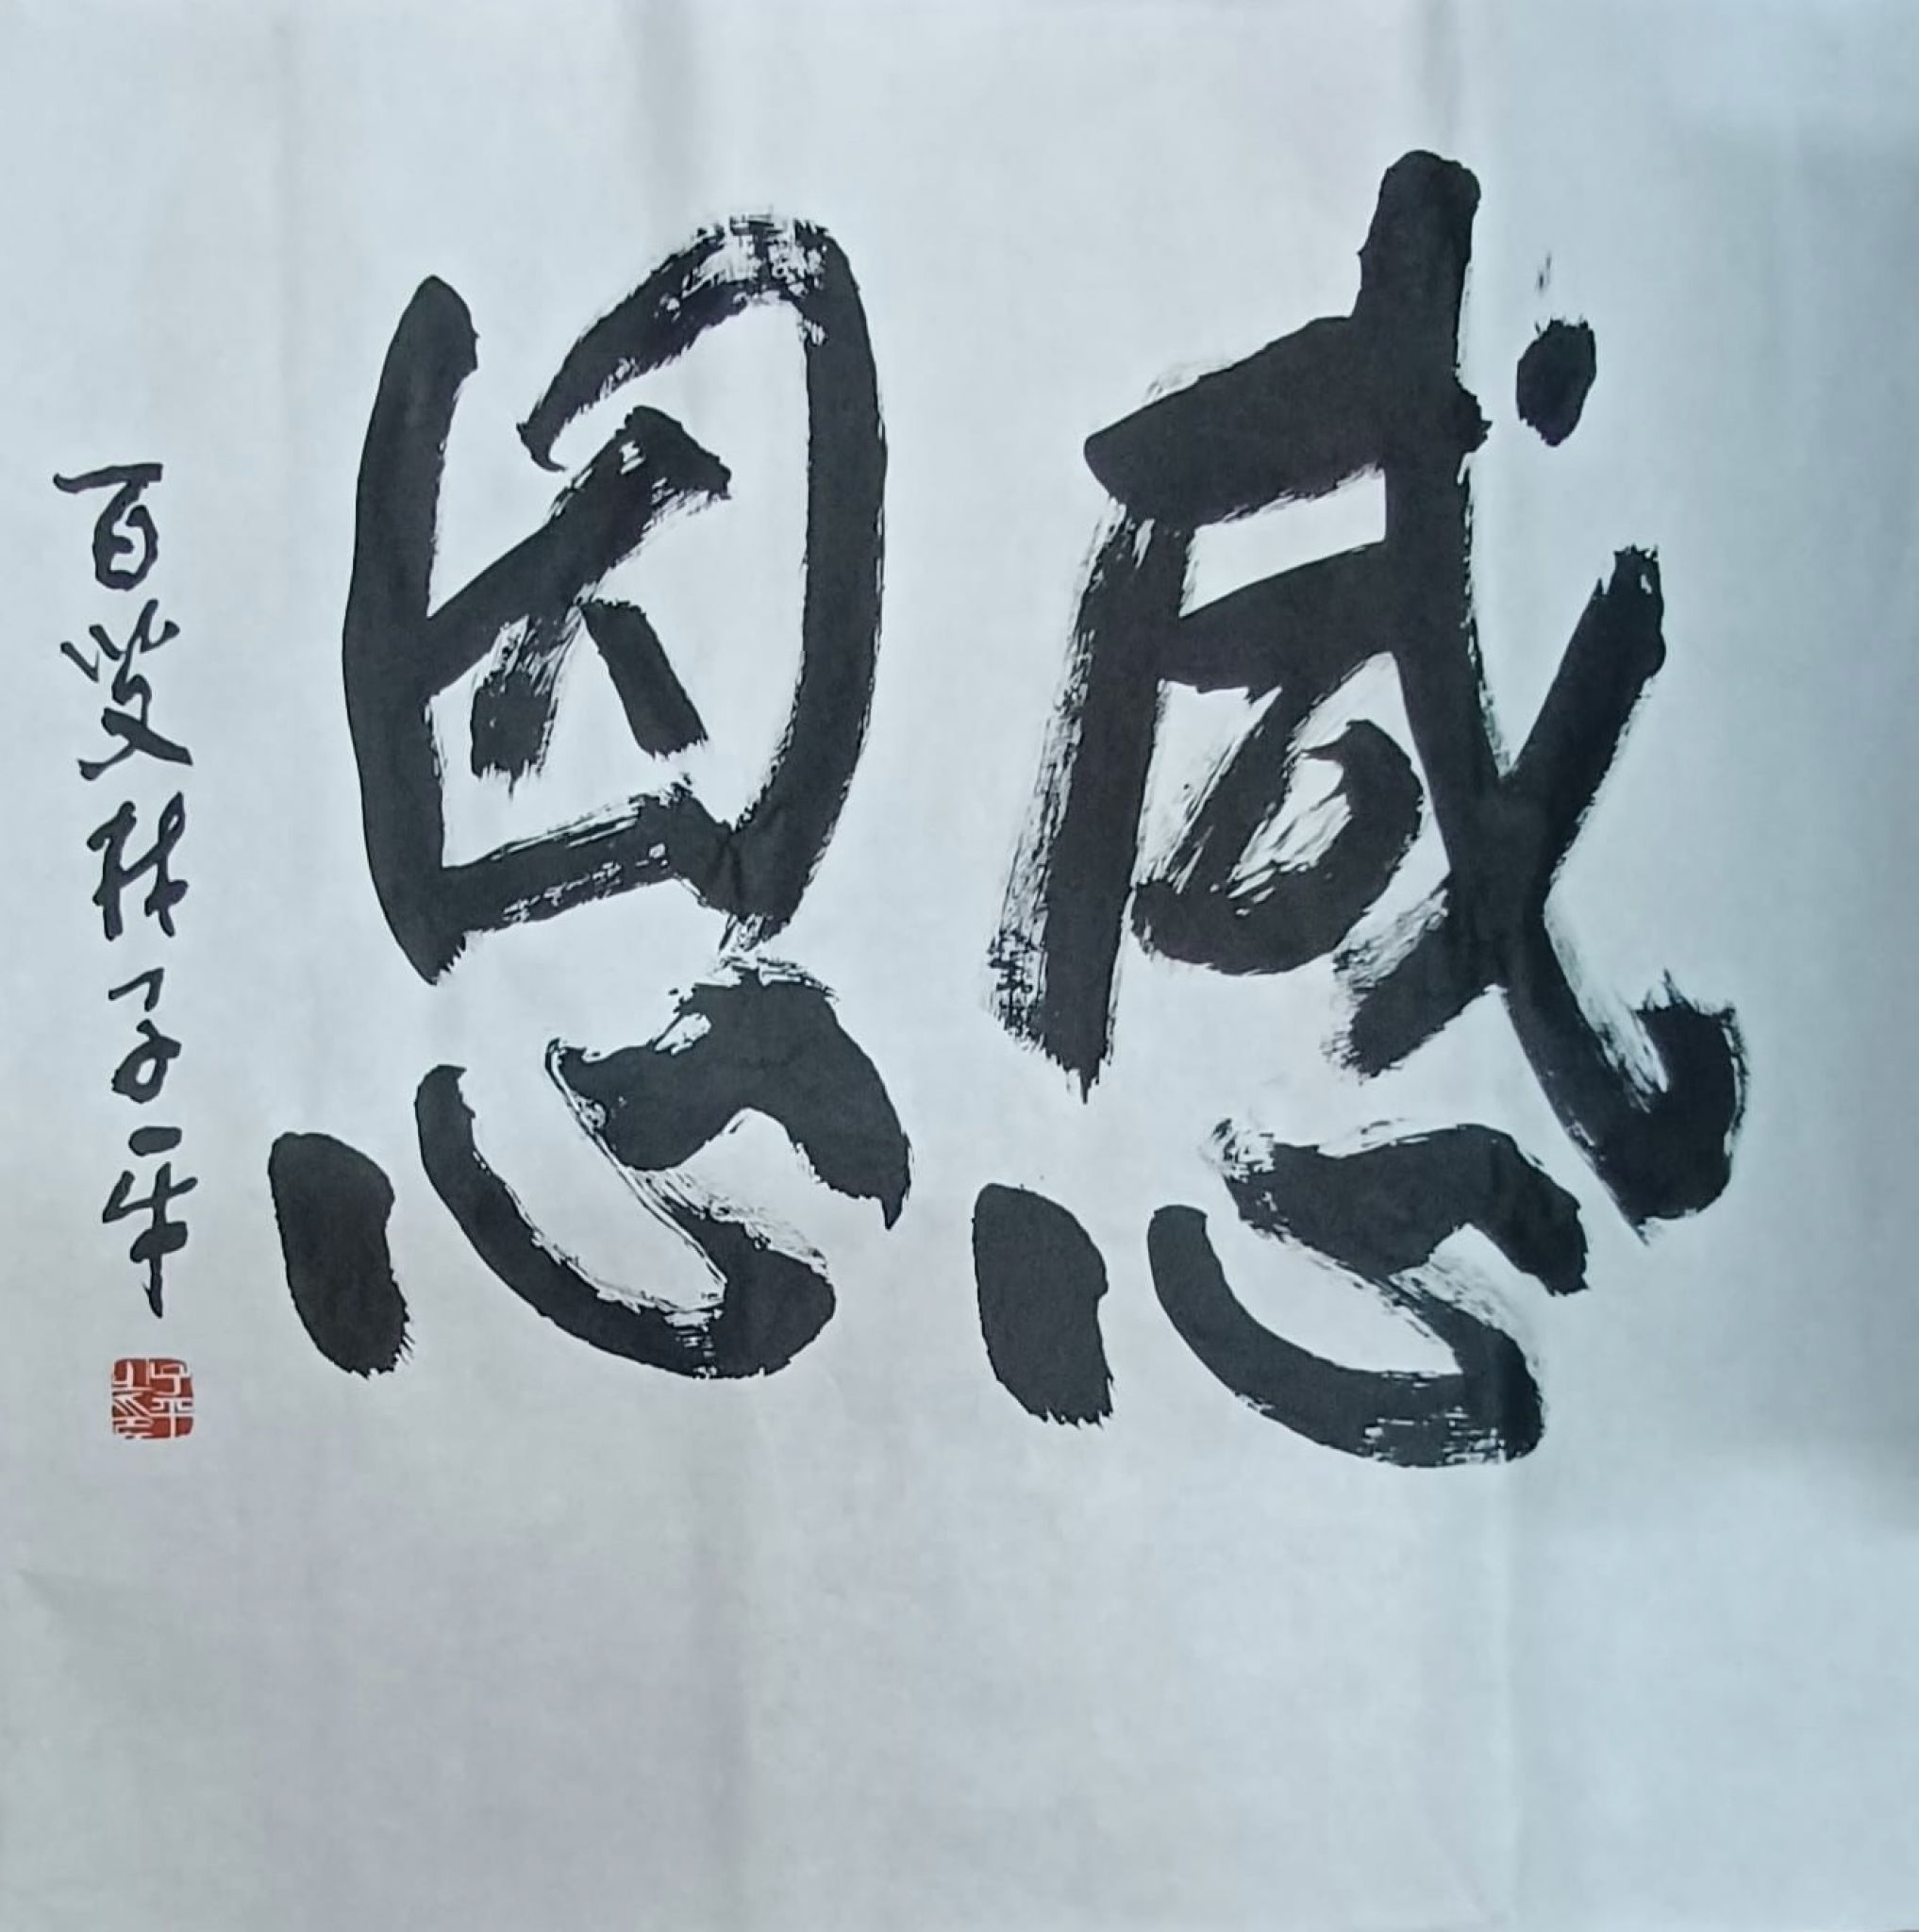 感恩
百叟林子平